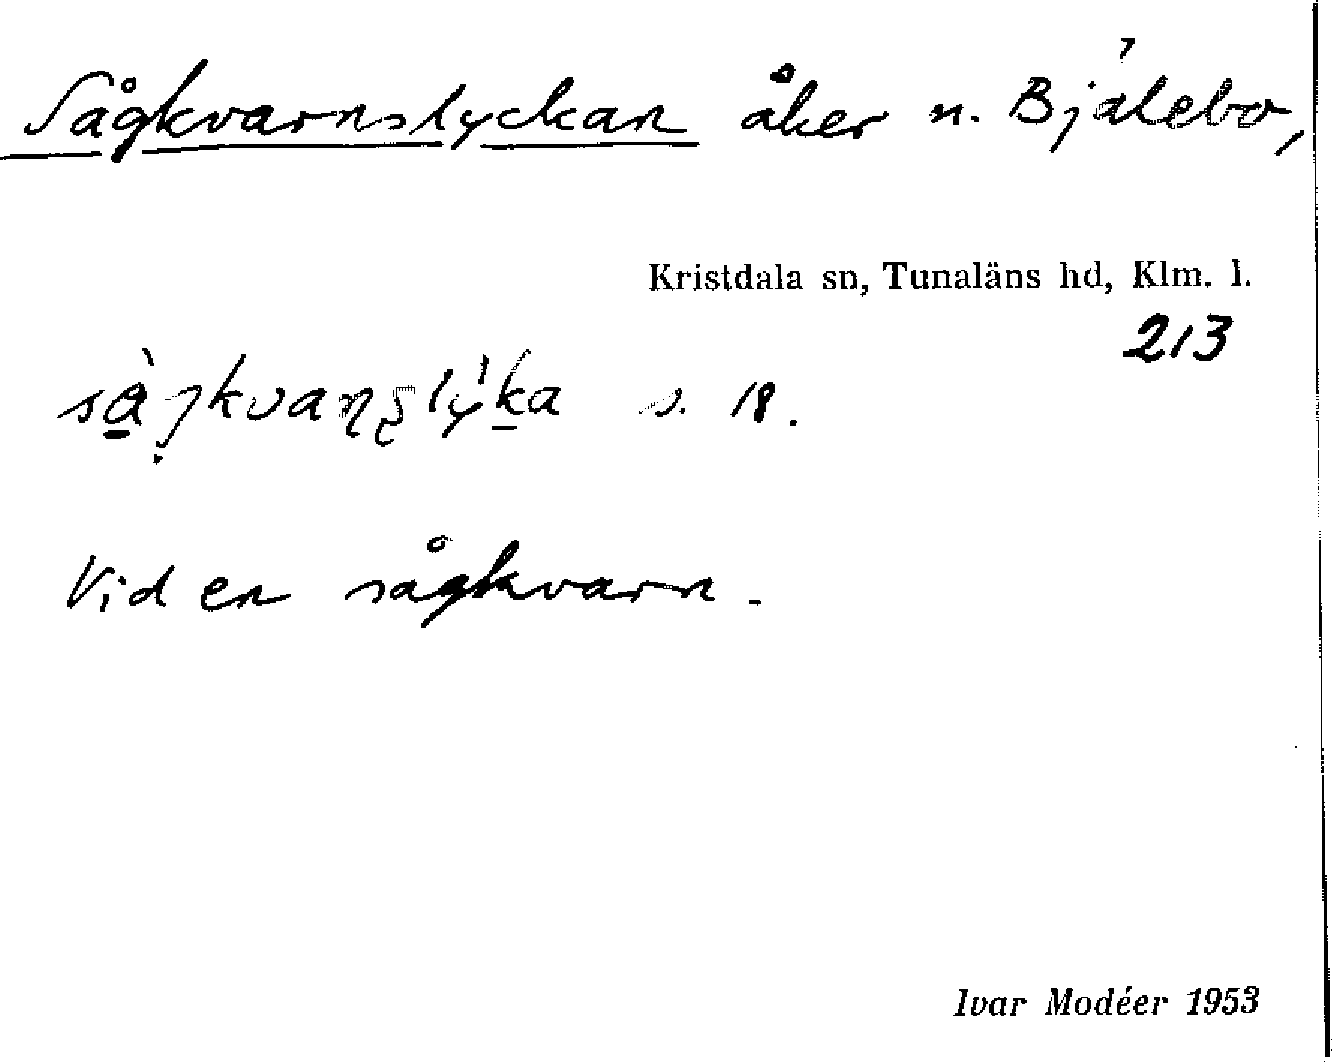 Sågkvarnslyckan åker n. Bjälebo,
Kristdala sn, Tunaläns hd, Klm. l.
213
s. 18.
Vid en sågkvarn.
Ivar Modéer 1953